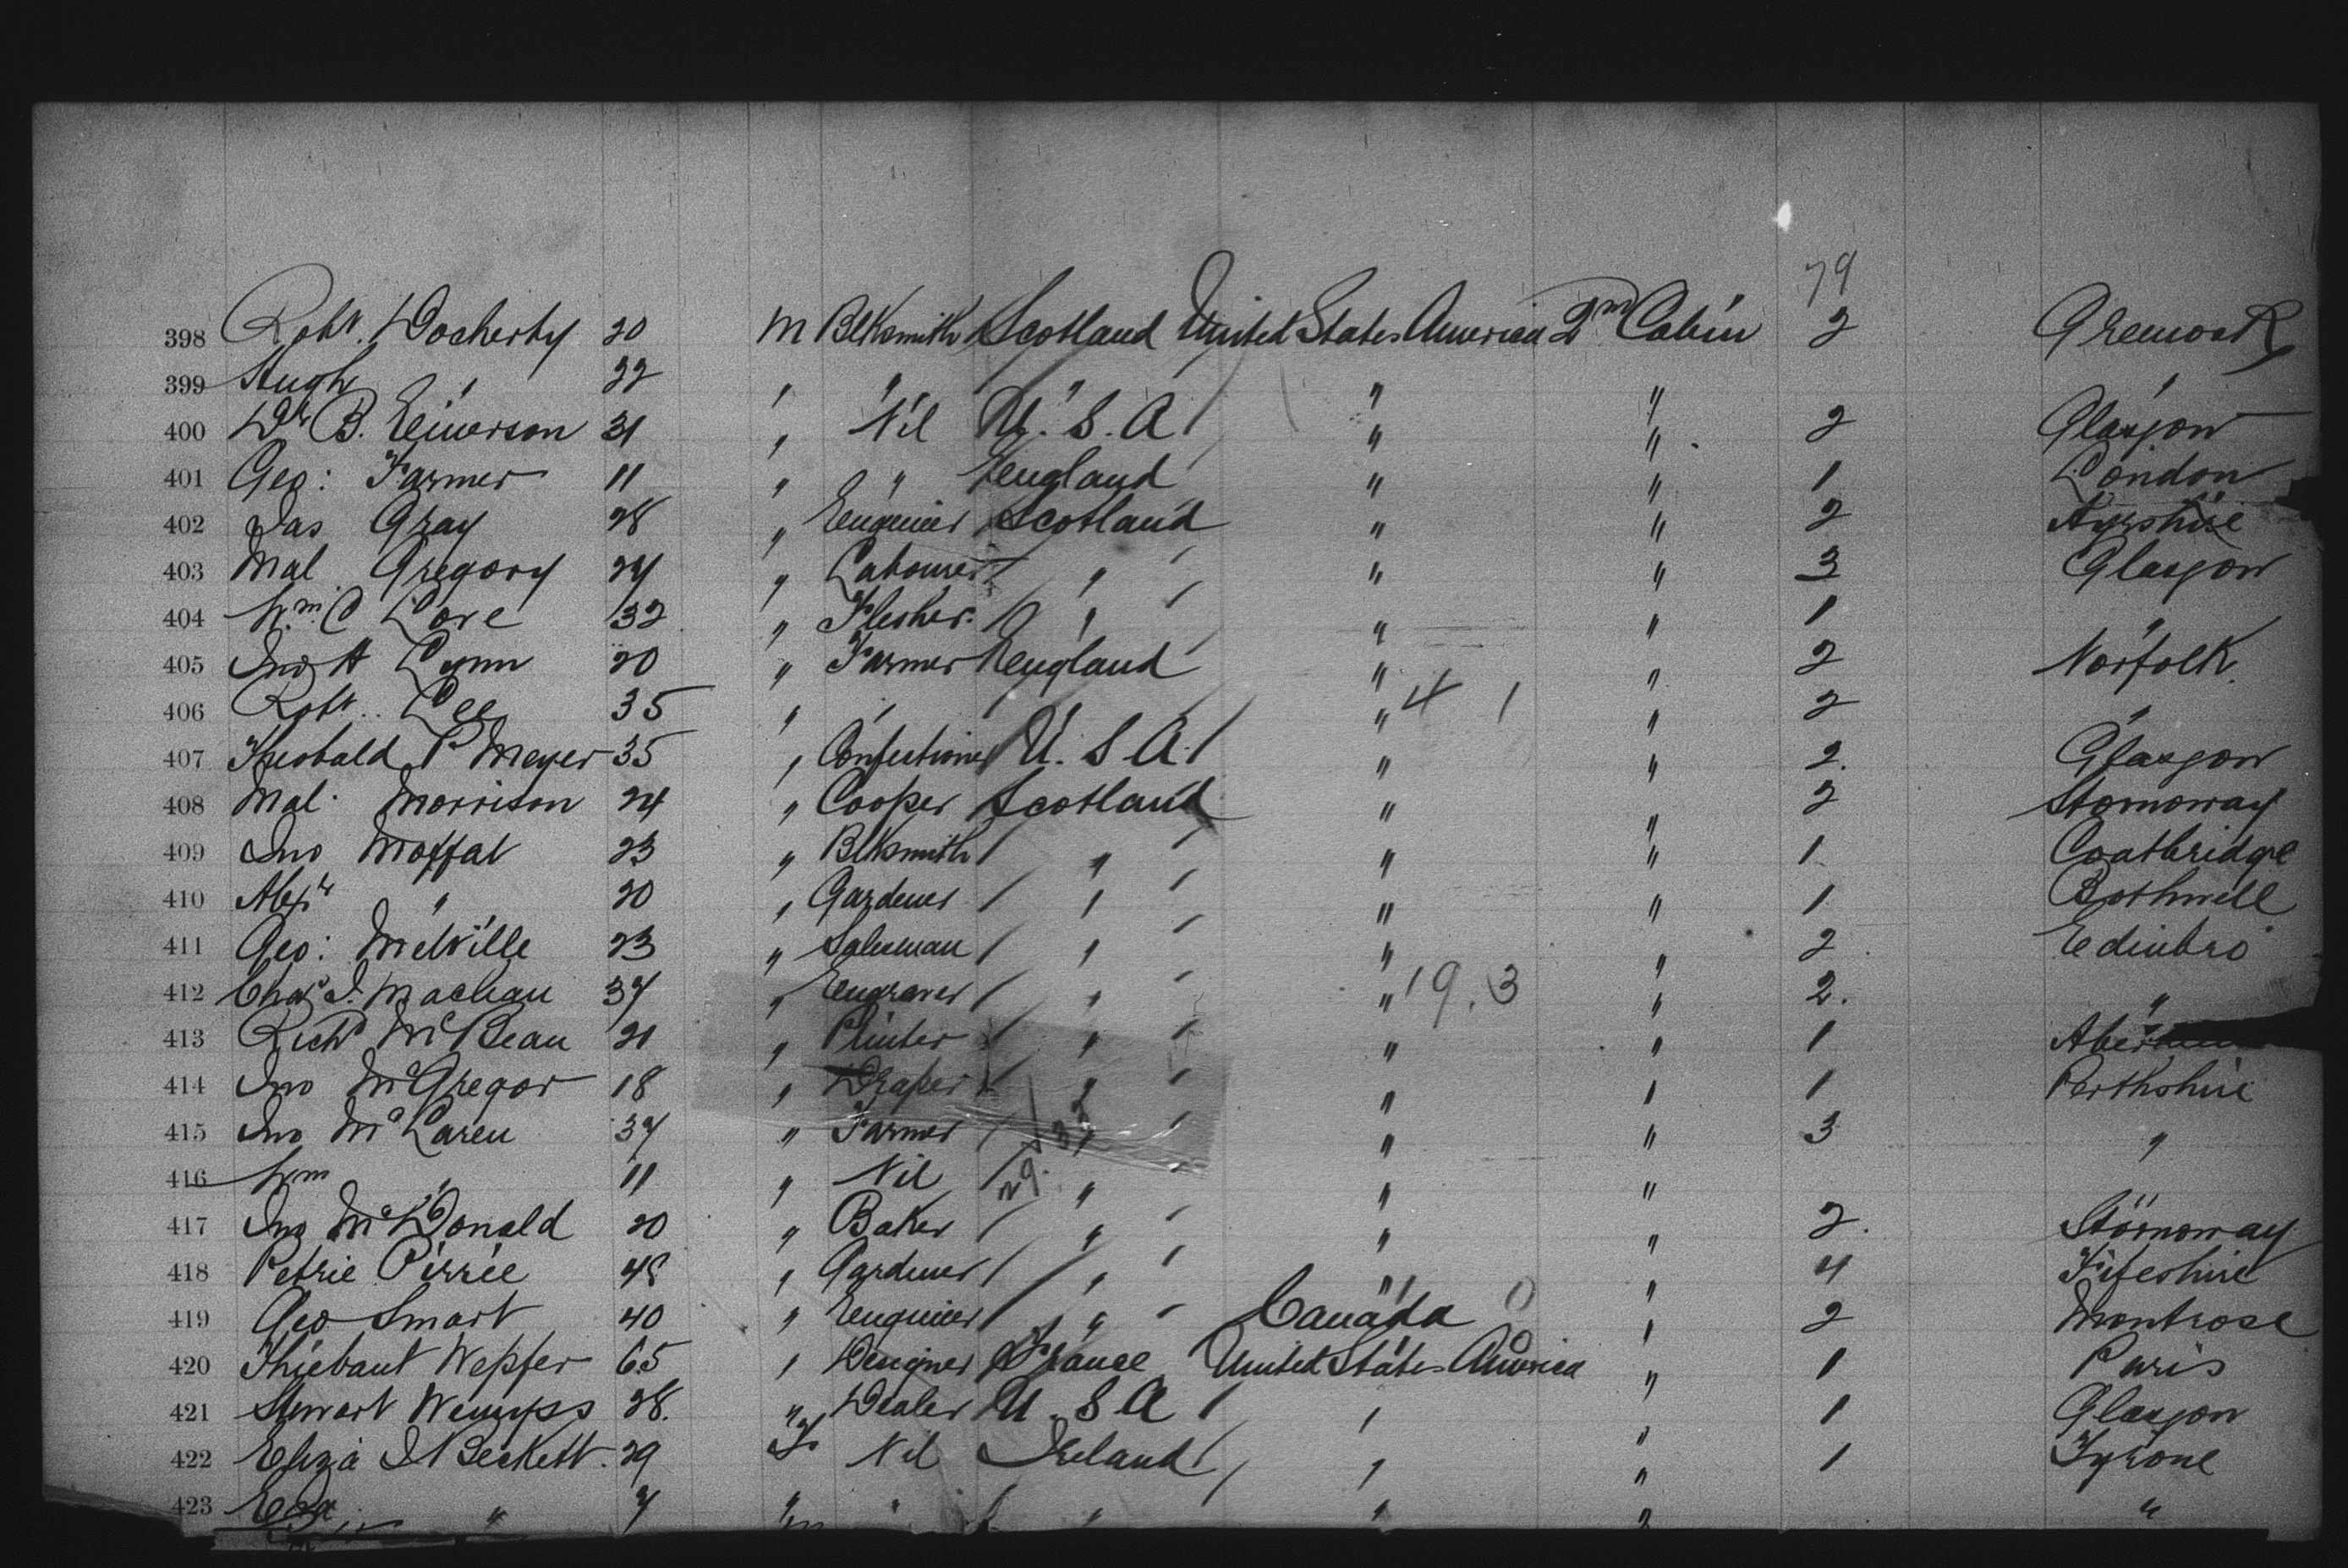 79
398 Robt. Docherty 20 M Blksmith Scotland United States America 2nd Cabin 2 Greenock
399 Hugh " 22 " " " " "
400 Dr B. Emerson 31 " Nil U.S.A " " 2 Glasgow
401 Geo: Farmer 11 " " England " " 1 London
402 Jas Gray 28 " Engineer Scotland " " 2 Ayrshire
403 Mal Gregory 24 " Labourer " " " 3 Glasgow
404 Wm. C Love 32 " Flesher " " " 1 "
405 Jno A Lynn 20 " Farmer England " " 2 Norfolk
406 Robt. Lee 35 " " " " 4 1 " 2 "
407 Theobald P Meyer 35 " Confectioner U.S.A. " " 2. Glasgow
408 Mal. Morrison 24 " Cooper Scotland " " 2 Stornoway
409 Jno Moffat 23 " Blksmith " " " 1 Coatbridge
410 Alexr " 20 " Gardener " " " 1 Bothwell
411 Geo: Melville 23 " Salesman " " " 2 Edinbro
412 Chas J. 37 " Engraver " " 19.3 " 2. "
413 Richd McBean 21 " " " " 1
414 Jno McGregor 18 " Draper " " " 1 Perthshire
415 Jno McLaren 37 " Farmer " " " 3 "
416 Wm " 11 " Nil 29. " " "
417 Jno McDonald 20 " Baker " " " 2. Stornoway
418 Petrie Pirrie 48 " Gardener " " " 4 Fifeshire
419 Geo Smart 40 " Engineer " Canada 0 " 2 Montrose
420 Thiebaut Wepfer 65 " Designer France United States America " 1 Paris
421 Stewart Wemyss 28. " Dealer U.S.A " " 1 Glasgow
422 Eliza J Beckett 29 F Nil Ireland " " 1 Tyrone
423 " " " " " " "